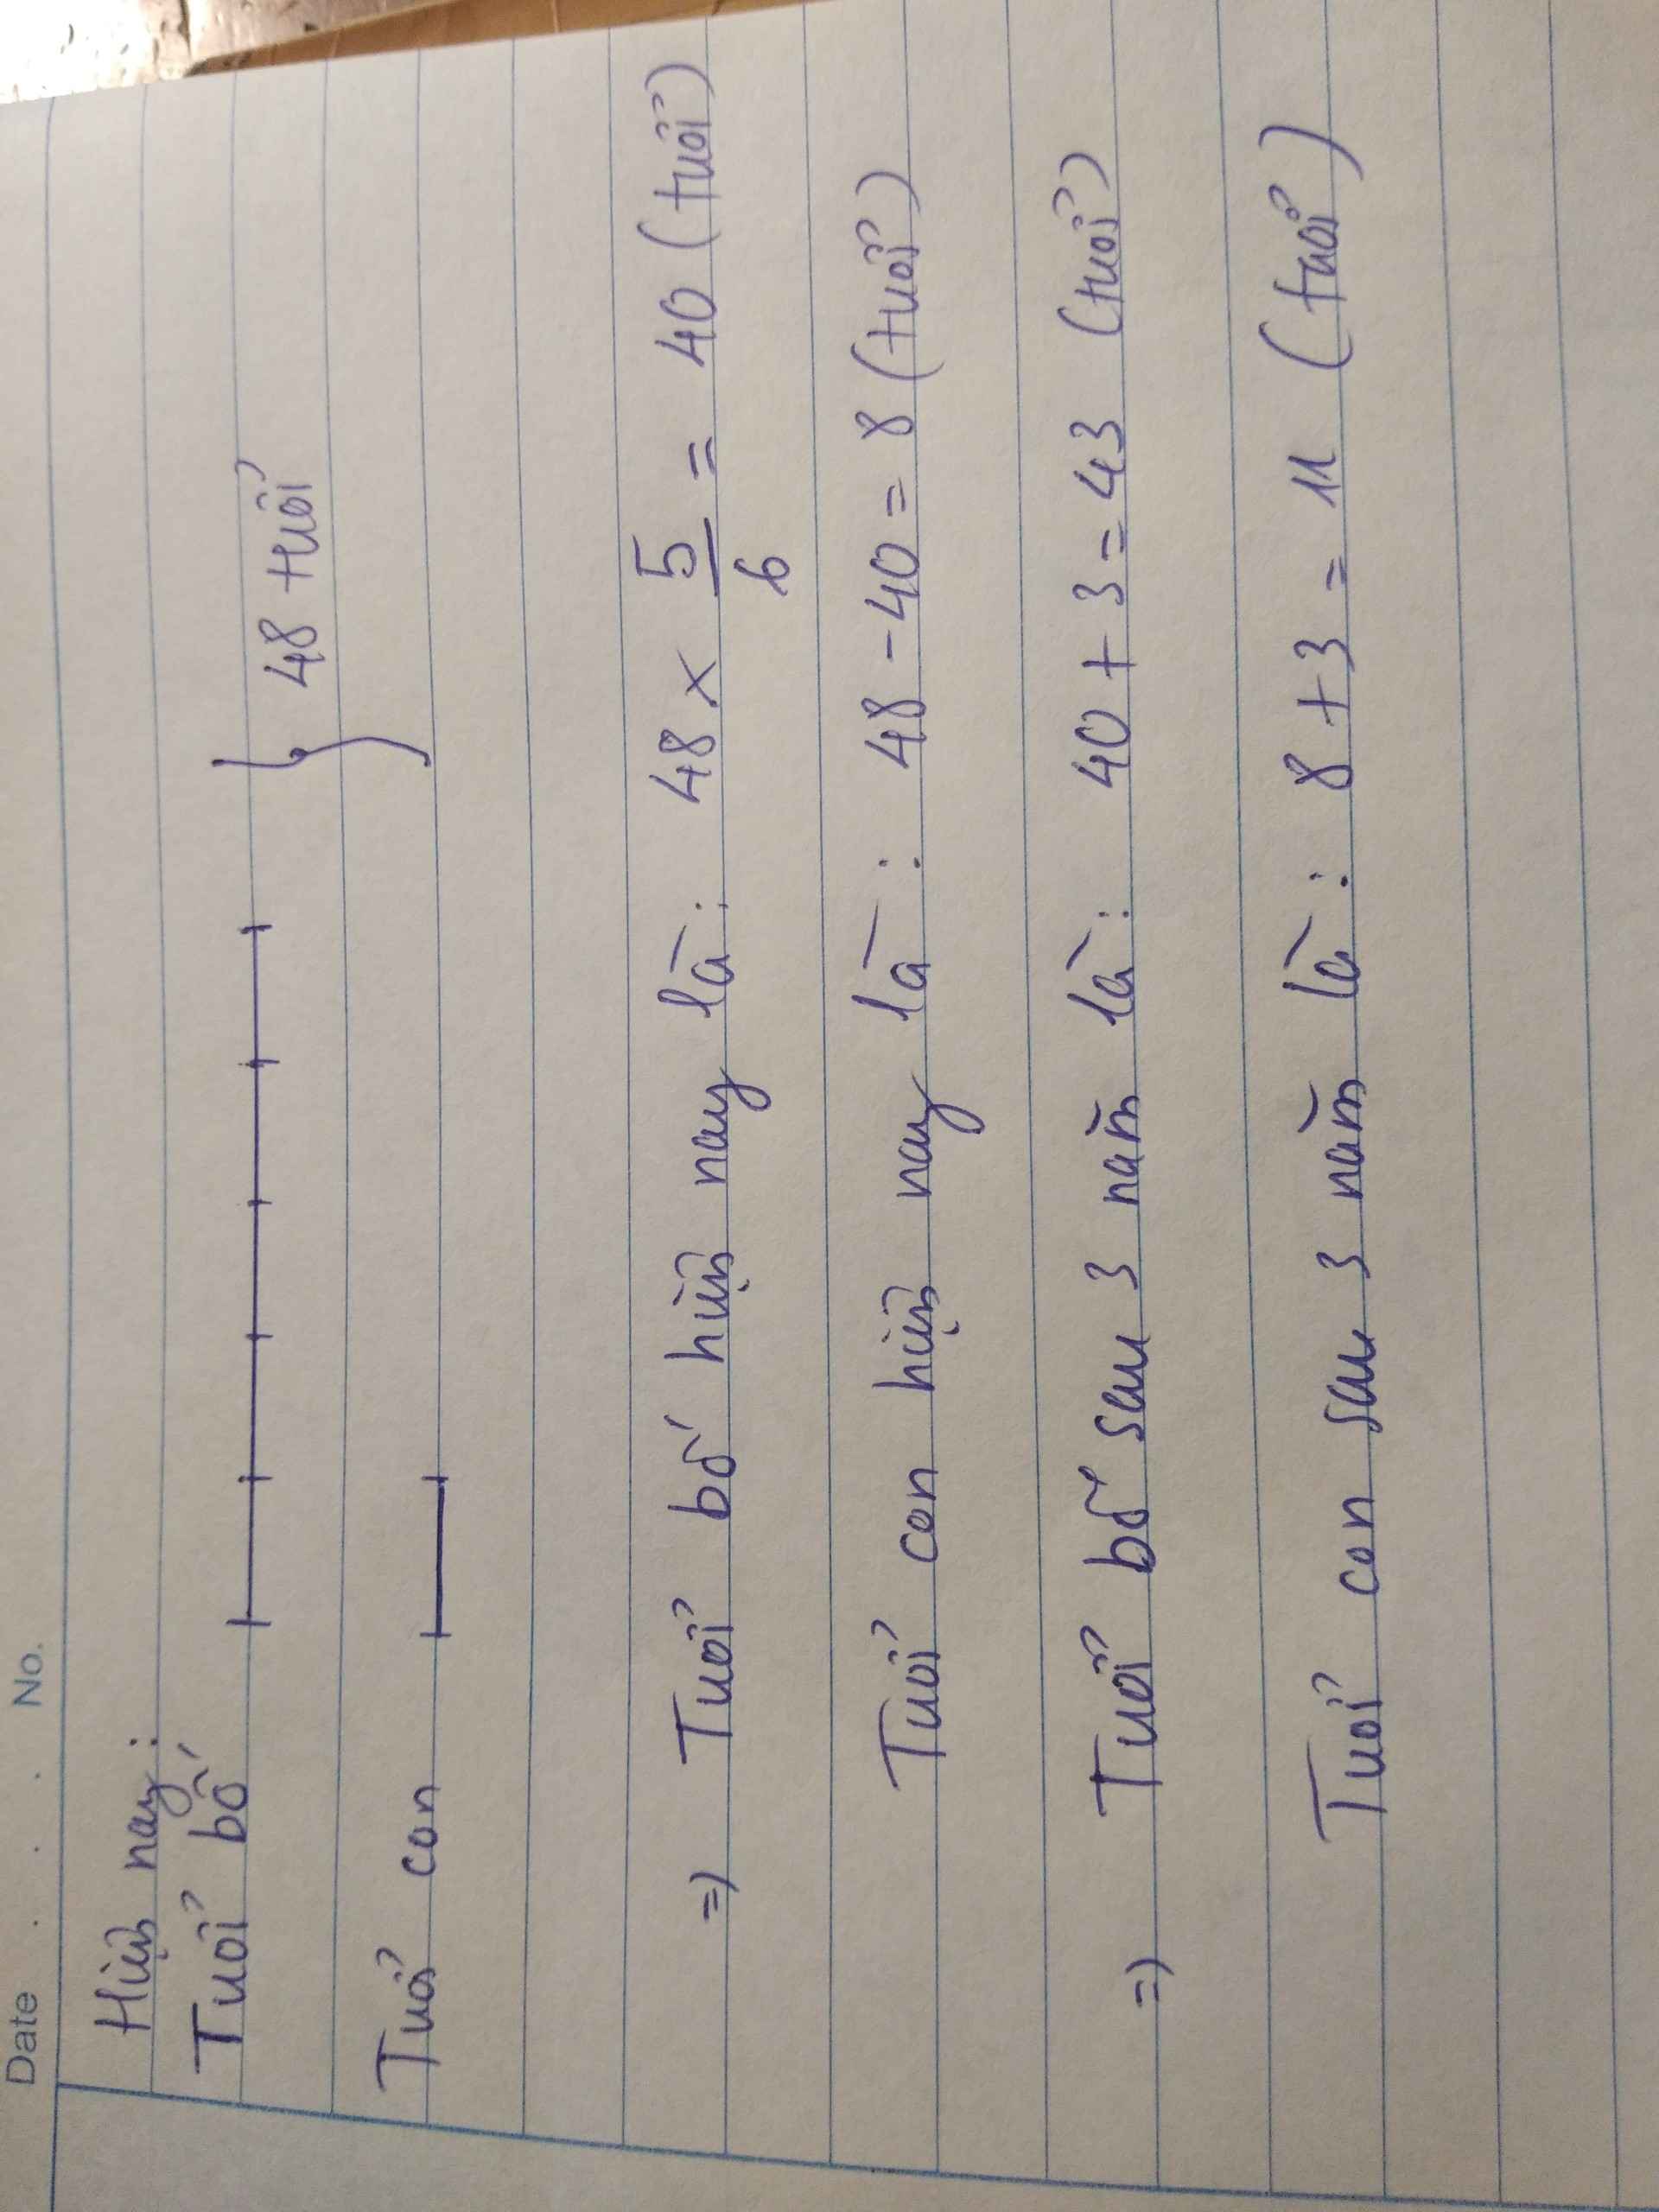 Date . . . No.
Hiện nay:
Tuổi bố
48 tuổi
Tuổi con
=) Tuổi bố hiện nay là: 48 x 5/6 = 40 (tuổi)
Tuổi con hiện nay là: 48 - 40 = 8 (tuổi)
=) Tuổi bố sau 3 năm là: 40 + 3 = 43 (tuổi)
Tuổi con sau 3 năm là: 8 + 3 = 11 (tuổi)